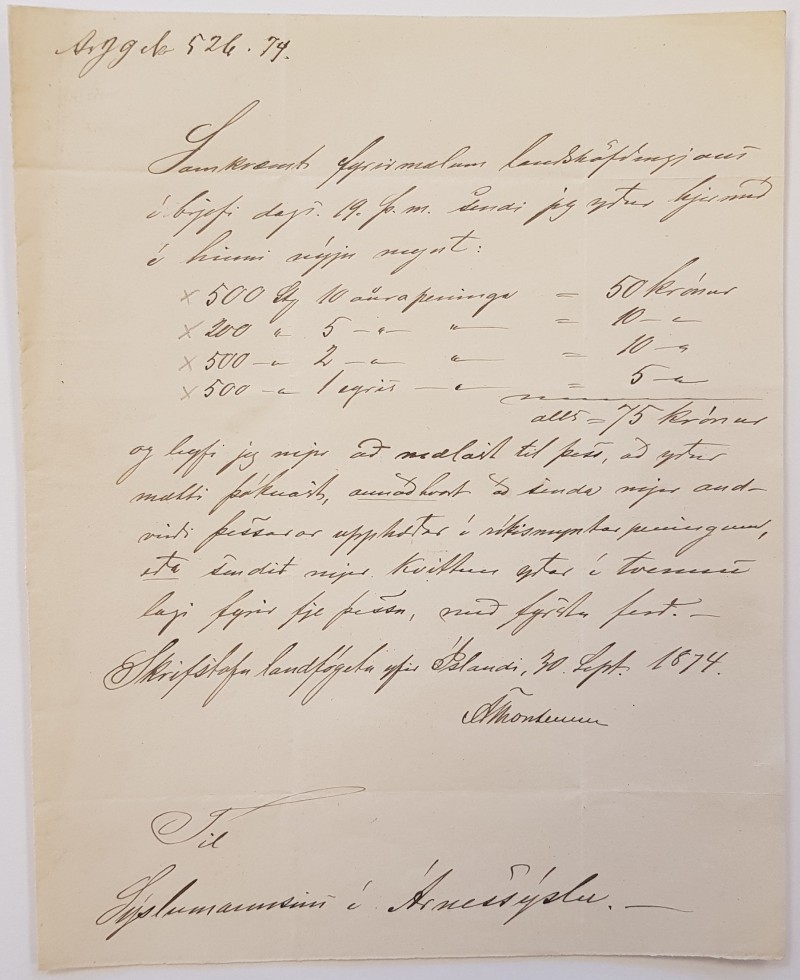 526. 74.
Samkvæmt fyrirmælum landshöfðingjans
í brjefi dags. 19. þ. m. sendi jeg yður hjermeð
í hinni nýju mynt:
× 500 St 10 aurapeninga = 50 krónur
× 200 " 5 —"— " — = 10 — "
× 500 —" 2 —" " — = 10 — "
× 500 —" 1 eyris —" — = 5 — "
alls = 75 krónur
og leyfi jeg mjer að mælast til þess, að yður
mætti þóknast, annaðhvort að senda mjer and-
virði þessarar upphæðar í ríkismyntar peningum,
eða sendið mjer kvittun yðar í tvennu
lagi fyrir fje þessu, með fyrstu ferð. —
Skrifstofu landfógeta yfir Íslandi, 30. Sept. 1874.
ÁThorsteinson
Til
Sýslumannsins í Árnessýslu. —